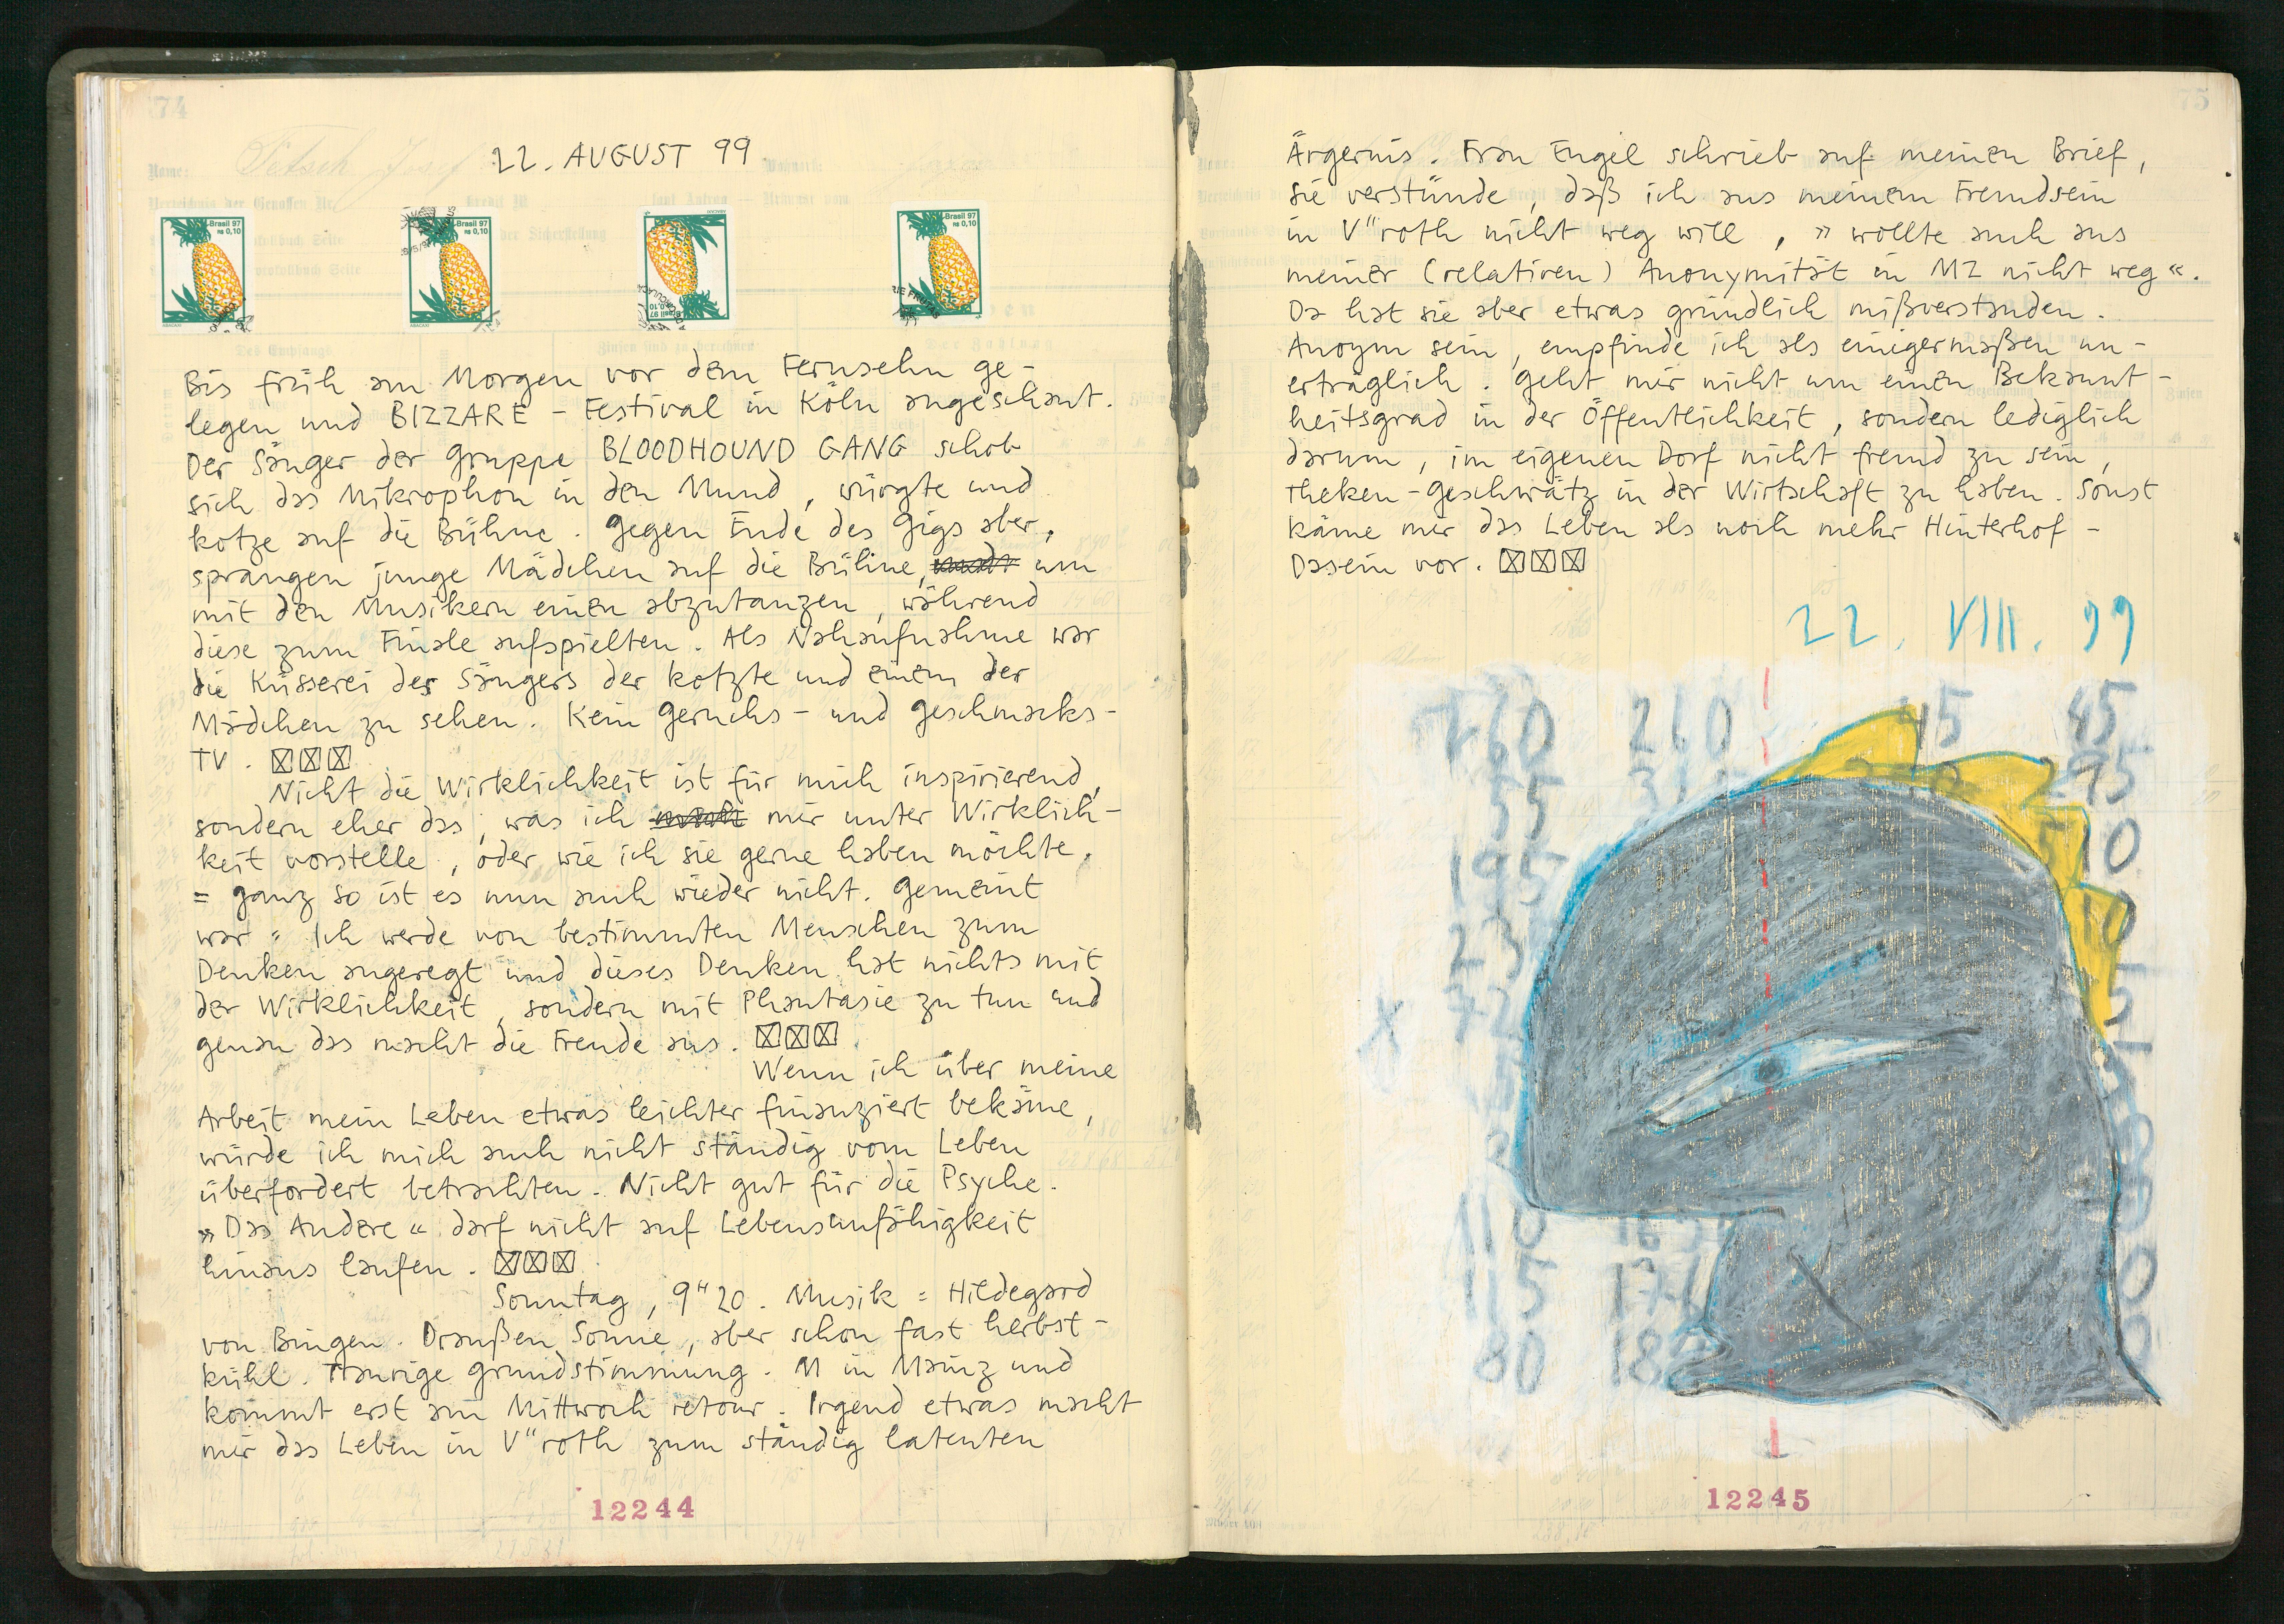 22. AUGUST 99
Brasil 97
R$ 0,10
ABACAXI
Brasil 97
R$ 0,10
ABACAXI
Brasil 97
R$ 0,10
ABACAXI
Brasil 97
R$ 0,10
ABACAXI
Bis früh am Morgen vor dem Fernsehn ge-
legen und BIZZARE - Festival in Köln angeschaut.
Der Sänger der Gruppe BLOODHOUND GANG schob
sich das Mikrophon in den Mund, würgte und
kotze auf die Bühne. Gegen Ende des Gigs aber,
sprangen junge Mädchen auf die Bühne, um
mit den Musikern einen abzutanzen, während
diese zum Finale aufspielten. Als Nahaufnahme war
die Küsserei des Sängers der kotzte und einem der
Mädchen zu sehen. Kein Geruchs- und Geschmacks-
TV.
Nicht die Wirklichkeit ist für mich inspirierend,
sondern eher das, was ich mir unter Wirklich-
keit vorstelle, oder wie ich sie gerne haben möchte.
= ganz so ist es nun auch wieder nicht. Gemeint
war = Ich werde von bestimmten Menschen zum
Denken angeregt und dieses Denken hat nichts mit
der Wirklichkeit, sondern mit Phantasie zu tun und
genau das macht die Freude aus.
Wenn ich über meine
Arbeit mein Leben etwas leichter finanziert bekäme,
würde ich mich auch nicht ständig vom Leben
überfordert betrachten. Nicht gut für die Psyche.
»Das Andere« darf nicht auf Lebensunfähigkeit
hinaus laufen.
Sonntag, 9"20. Musik = Hildegard
von Bingen. Draußen Sonne, aber schon fast herbst-
kühl. Traurige Grundstimmung. M in Mainz und
kommt erst am Mittwoch retour. Irgend etwas macht
mir das Leben in V"roth zum ständig latenten
12244
Ärgernis. Frau Engel schrieb auf meinen Brief,
sie verstünde, daß ich aus meinem Fremdsein
in V"roth nicht weg will, »wollte auch aus
meiner (relativen) Anonymität in MZ nicht weg«.
Da hat sie aber etwas gründlich mißverstanden.
Anoym sein, empfinde ich als einigermaßen un-
erträglich. Geht mir nicht um einen Bekannt-
heitsgrad in der Öffentlichkeit, sondern lediglich
darum, im eigenen Dorf nicht fremd zu sein,
Theken-Geschwätz in der Wirtschaft zu haben. Sonst
käme mir das Leben als noch mehr Hinterhof-
Dasein vor.
22. VIII. 99
260 260 45 45
55 95
195 10
23
72
X
110
115 171
80 18
12245